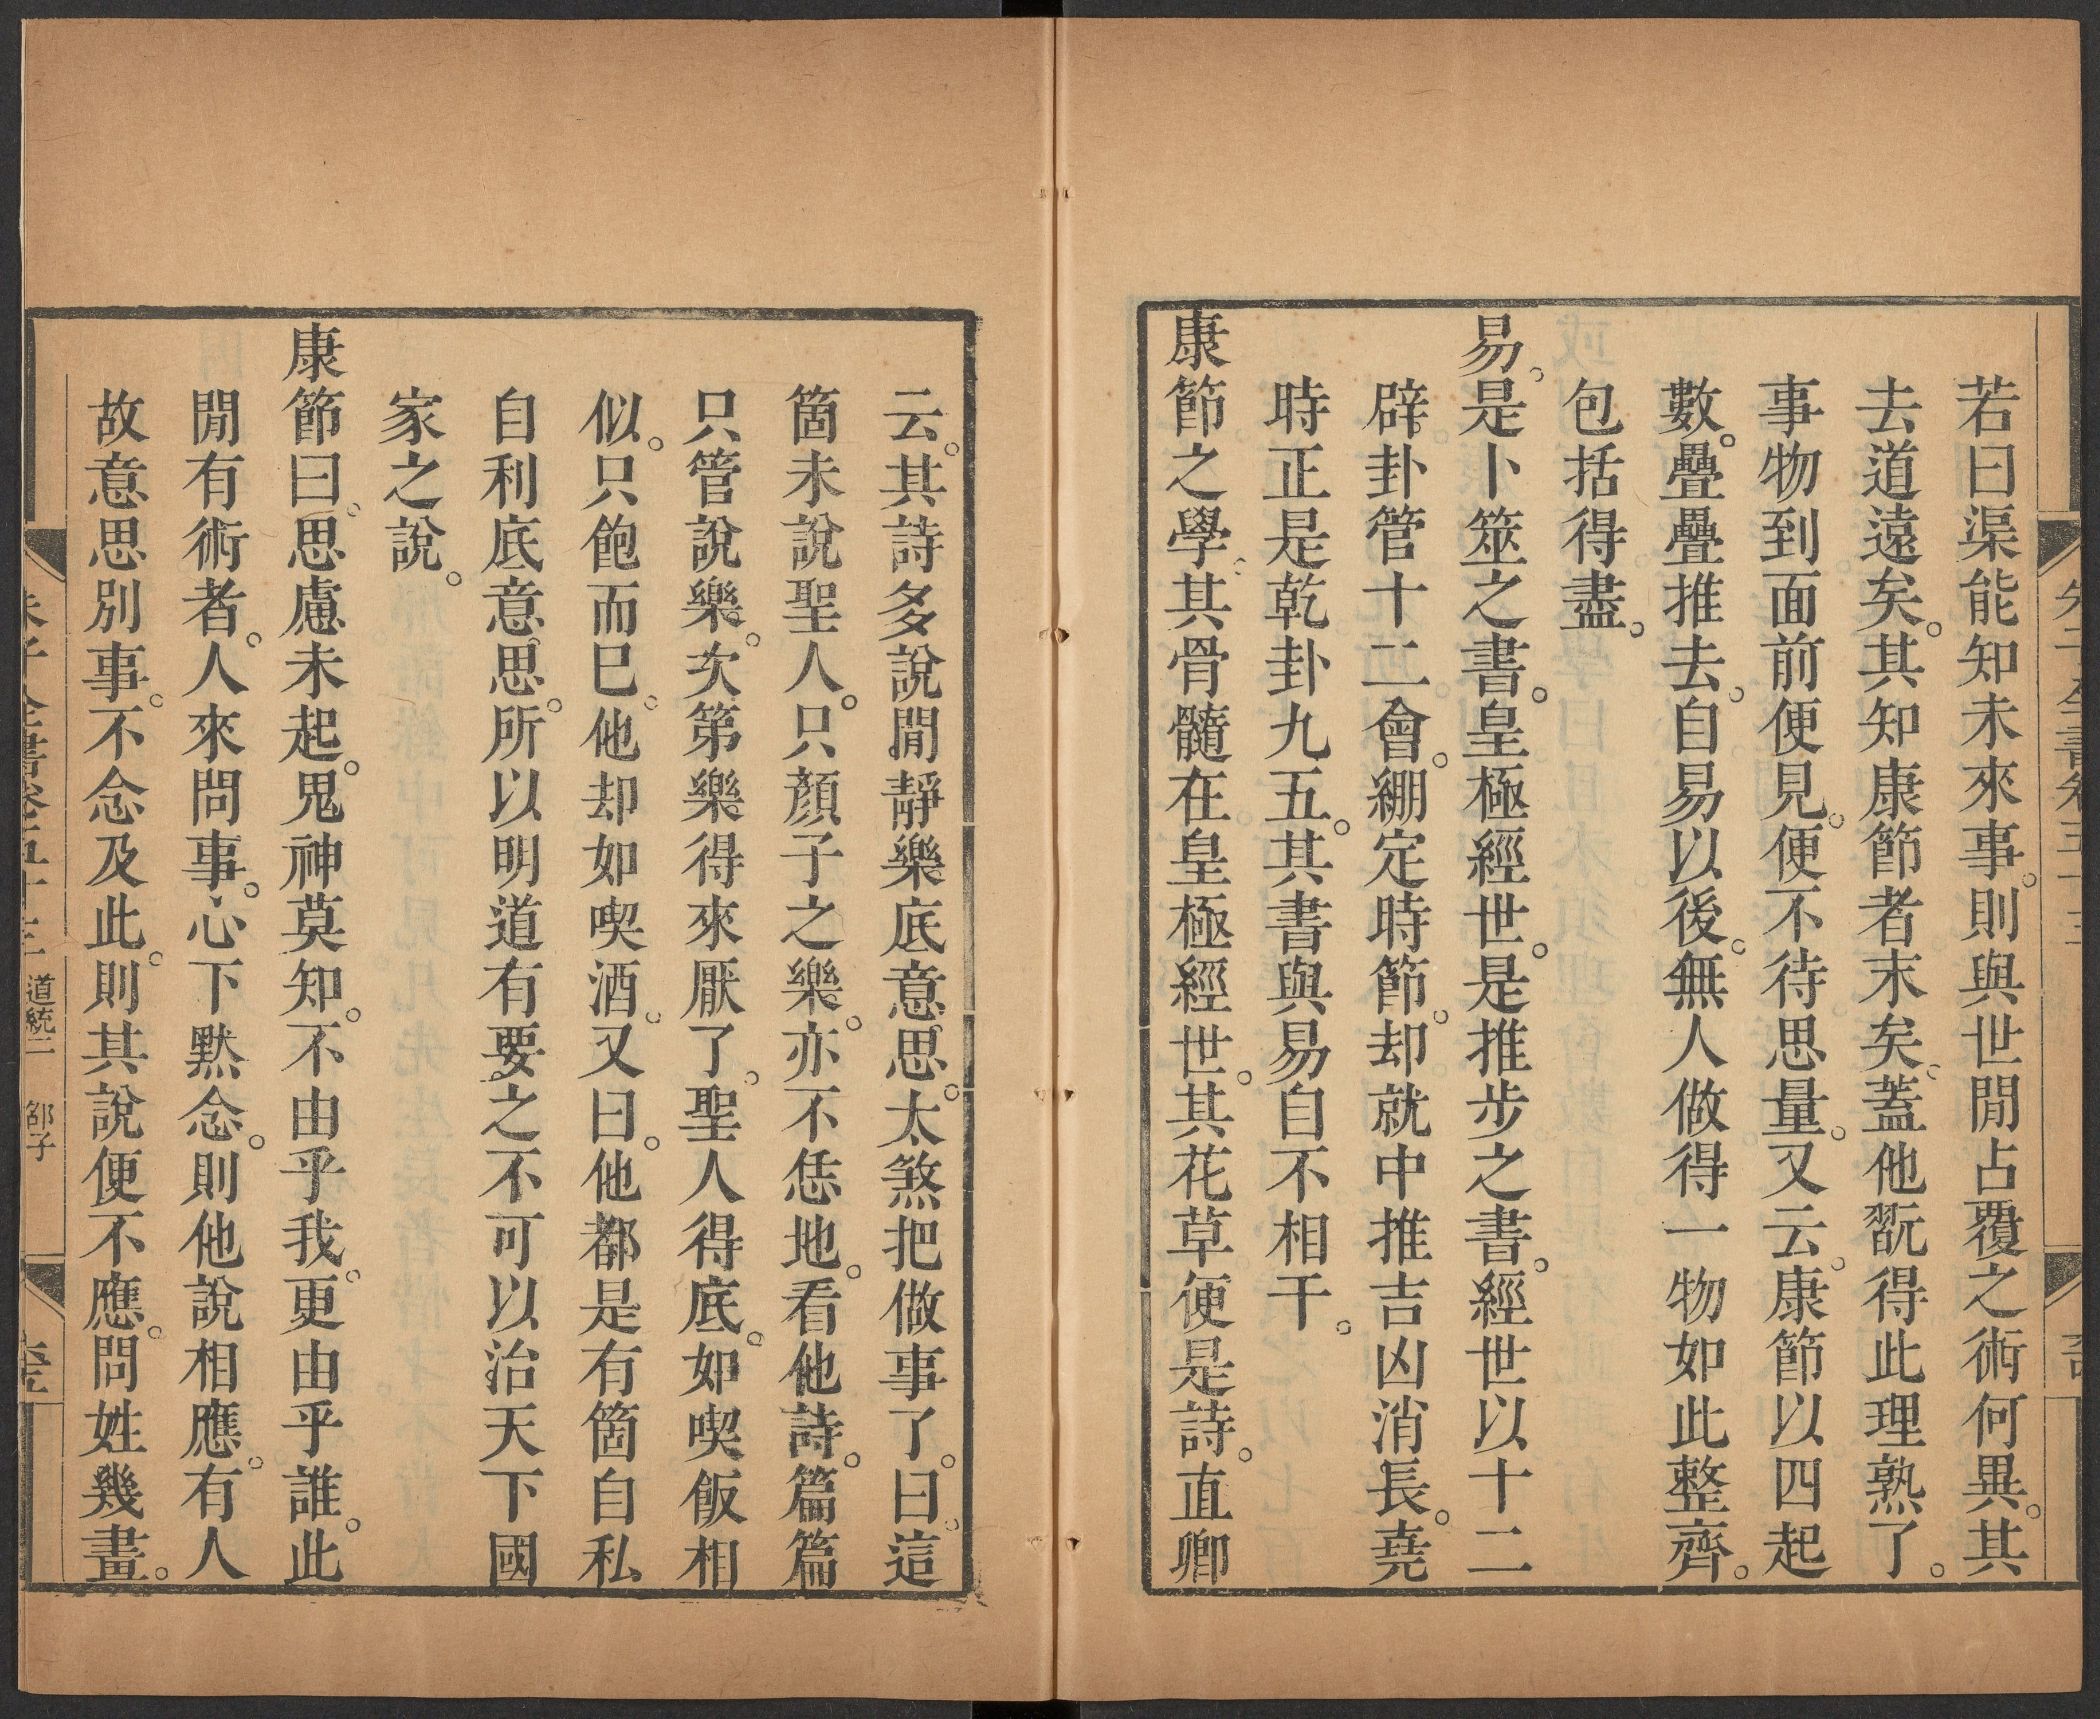 若曰渠能知未來事。則與世閒占覆之術何異。其
去道遠矣。其知康節者末矣。蓋他翫得此理熟了。
事物到面前便見。便不待思量。又云。康節以四起
數。疊疊推去。自易以後。無人做得一物如此整齊。
包括得盡。
易。是卜筮之書。皇極經世。是推步之書。經世以十二
辟卦管十二會。綳定時節。却就中推吉凶消長。堯
時正是乾卦九五。其書與易自不相干。
康節之學。其骨髓在皇極經世。其花草便是詩。直卿
云。其詩多說閒靜樂底意思。太煞把做事了。曰。這
箇未說聖人。只顏子之樂。亦不恁地。看他詩。篇篇
只管說樂。次第樂得來厭了。聖人得底。如喫飯相
似。只飽而巳。他却如喫酒。又曰。他都是有箇自私
自利底意思。所以明道有要之不可以治天下國
家之說。
康節曰。思慮未起。鬼神莫知。不由乎我。更由乎誰。此
閒有術者。人來問事。心下黙念。則他說相應。有人
故意思別事。不念及此。則其說便不應。問姓幾畫。
朱子全書卷五十三 道統二 邵子